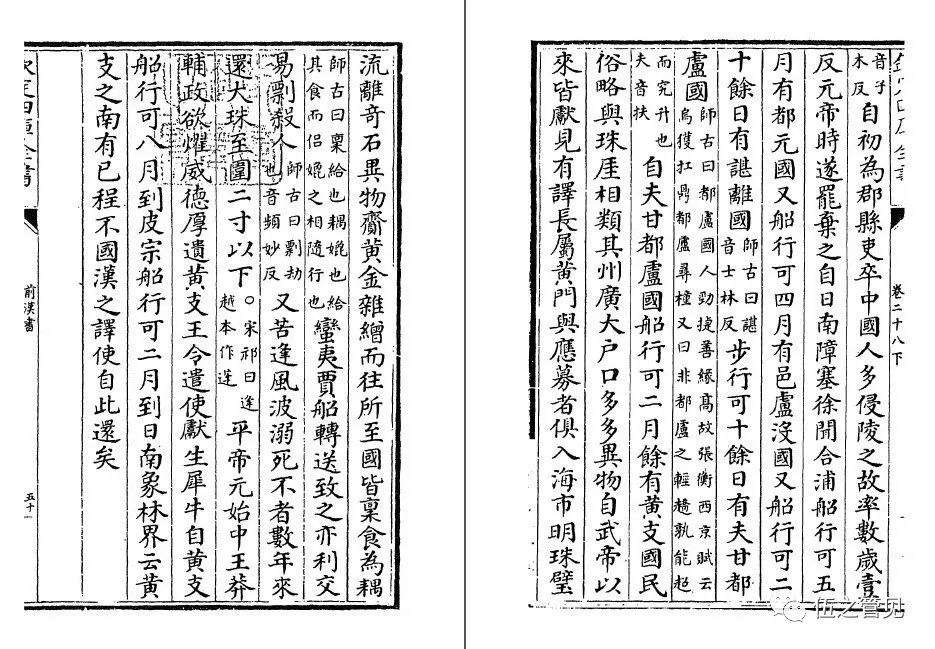 卷二十八下
音子本反自初為郡縣吏卒中國人多侵陵之故率數歲壹
反元帝時遂罷棄之自日南障塞徐聞合浦船行可五
月有都元國又船行可四月有邑盧沒國又船行可二
十餘日有諶離國師古曰諶音士林反步行可十餘日有夫甘都
盧國師古曰都盧國人勁捷善緣髙故張衡西京賦云烏獲扛鼎都盧尋橦又曰非都盧之輕趫孰能超
而究升也夫音扶自夫甘都盧國船行可二月餘有黄支國民
俗略與珠厓相類其州廣大户口多多異物自武帝以
來皆獻見有譯長屬黄門與應募者俱入海市明珠璧
流離奇石異物齎黄金雜繒而往所至國皆稟食為耦
師古曰稟給也耦媲也給其食而侶媲之相隨行也蠻夷賈船轉送致之亦利交
易剽殺人師古曰剽劫也音頻妙反又苦逢風波溺死不者數年來
還大珠至圍二寸以下○宋祁曰逢越本作蓬平帝元始中王莽
輔政欲燿威德厚遺黄支王令遣使獻生犀牛自黄支
船行可八月到皮宗船行可二月到日南象林界云黄
支之南有已程不國漢之譯使自此還矣
欽定四庫全書
前漢書
五十一
伍之管见